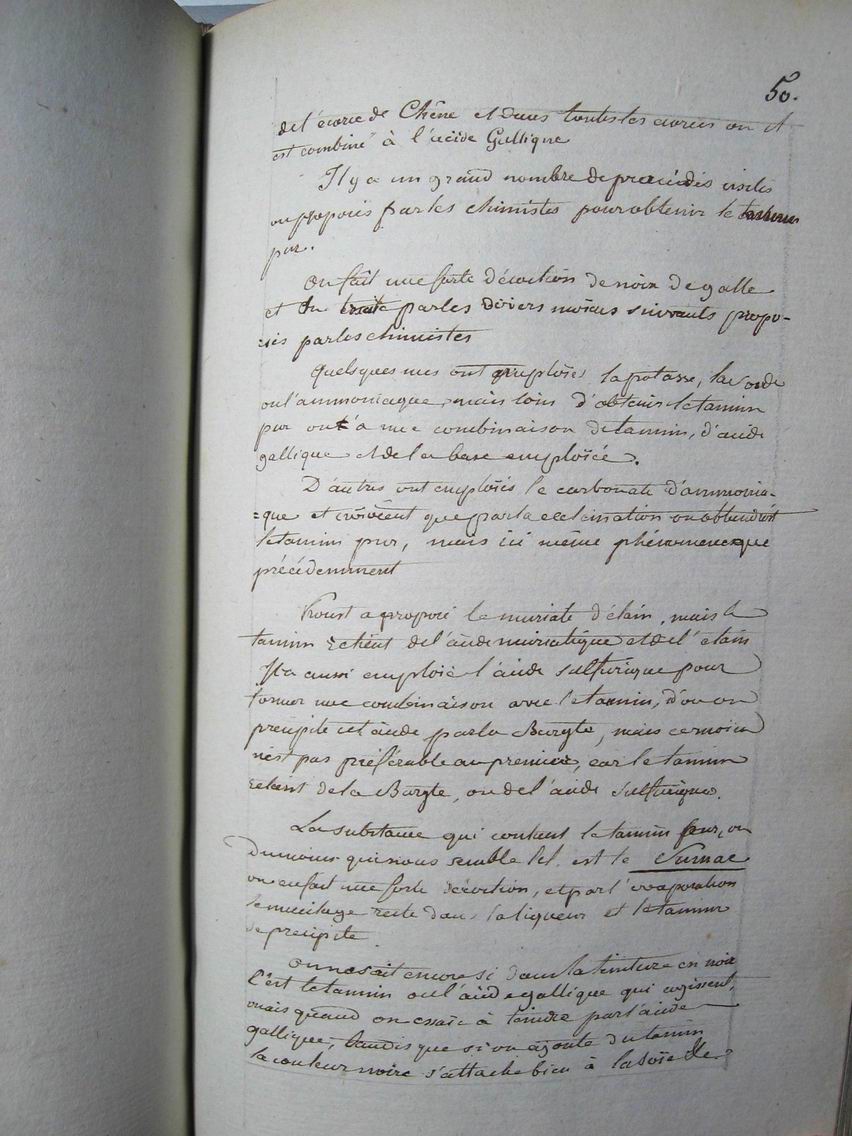 50.
de l'écorce de Chêne et dans toutes les écorces on il
est combiné à l'acide Gallique
Il y a un grand nombre de procédés usités
ou proposés par les chimistes pour obtenir le tannin
pur.
On fait une forte décoction de noix de galle
et On traite par les divers moiens suivants propo-
sés par les chimistes
Quelques uns ont emploiés la potasse, la soude
ou l'ammoniaque, mais loin d'obtenir le tamin
pur on t'a une combinaison de tamin, d'acide
gallique et de la base emploiée.
D'autres ont emploiés le carbonate d'ammonia-
=que et croioent que par la calcination on obtiendroit
le tamin pur, mais ici même phénomene que
précédemment
Proust a proposé le muriate d'étain, mais le
tamin retient de l'acide muriatique et de l'étain
Il a aussi emploié l'acide sulfurique pour
former une combinaison avec le tamin, d'ou on
précipite cet acide par la Baryte, mais ce moien
n'est pas préférable au premier, car le tamin
retient de la Baryte, ou de l'acide sulfurique.
La substance qui contient le tamin pur, ou
Du moins qui nous semble tel est le Sumac
on en fait une forte décoction, et par l'évaporation
le mucilage reste dans la liqueur et le tamin
se précipite.
On ne sait encore si dans la teinture en noir
C'est le tamin ou l'acide gallique qui agissent,
mais quand on essaie à teindre par l'acide
gallique, tandis que si on ajoute du tamin
la couleur noire s'attache bien à la soie